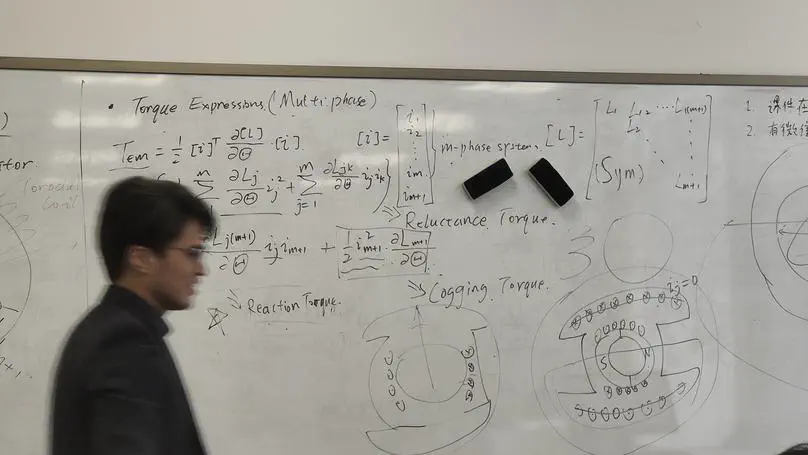 • Torque Expressions. (Multiphase)
Tem = 1/2 [i]^T ∂[L]/∂Θ · [i]
[i] = [i1 i2 ⋮ im im+1] } m-phase system.
[L] = [L1 L12 ⋯ L1(m+1) L2 (Sym) Lm+1]
m ∂Lj/∂Θ ij² + Σ m j=1 ∂Ljk/∂Θ ij ik
⇒ Reluctance Torque.
Lj(m+1)/∂Θ ij im+1 + 1/2 i²m+1 ∂Lm+1/∂Θ
⇒ Reaction Torque.
⇒ Cogging Torque.
ij=0
S N
1. 课件在
2. 有微信